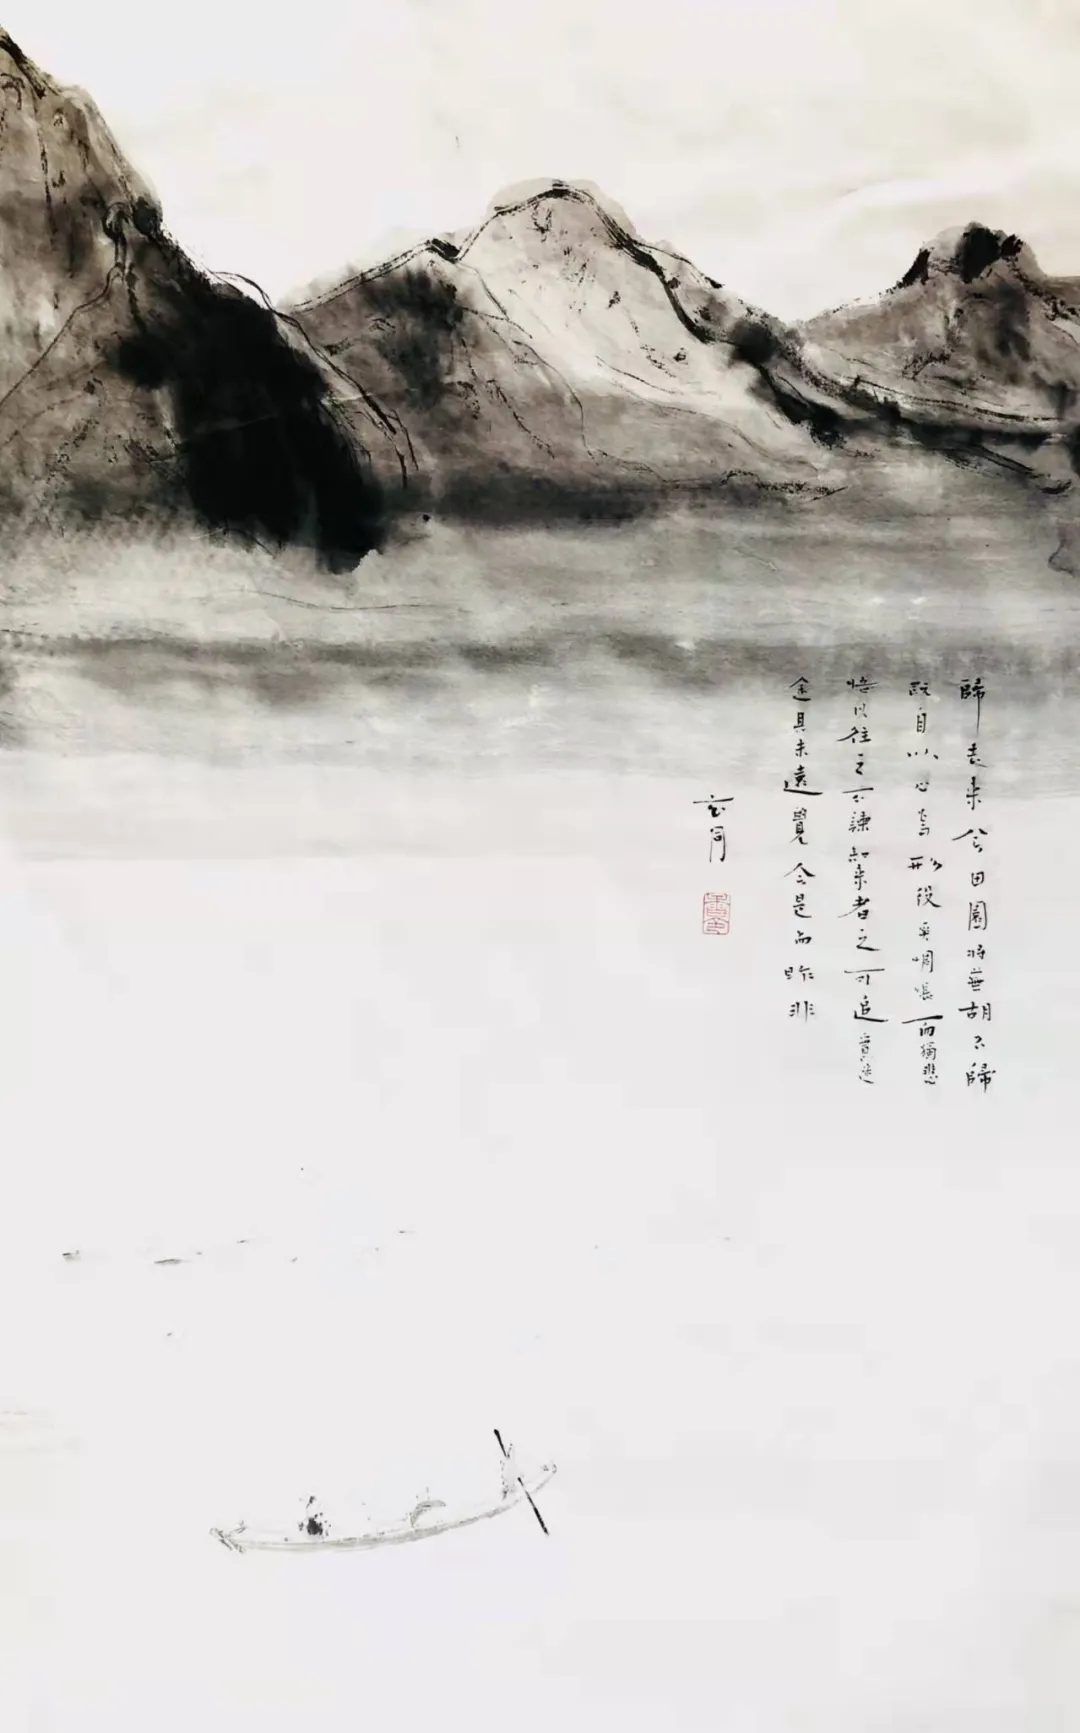 歸去來兮田園將蕪胡不歸
既自以心為形役奚惆悵而獨悲
悟以往之不諫知來者之可追實迷
途其未遠覺今是而昨非
玄同